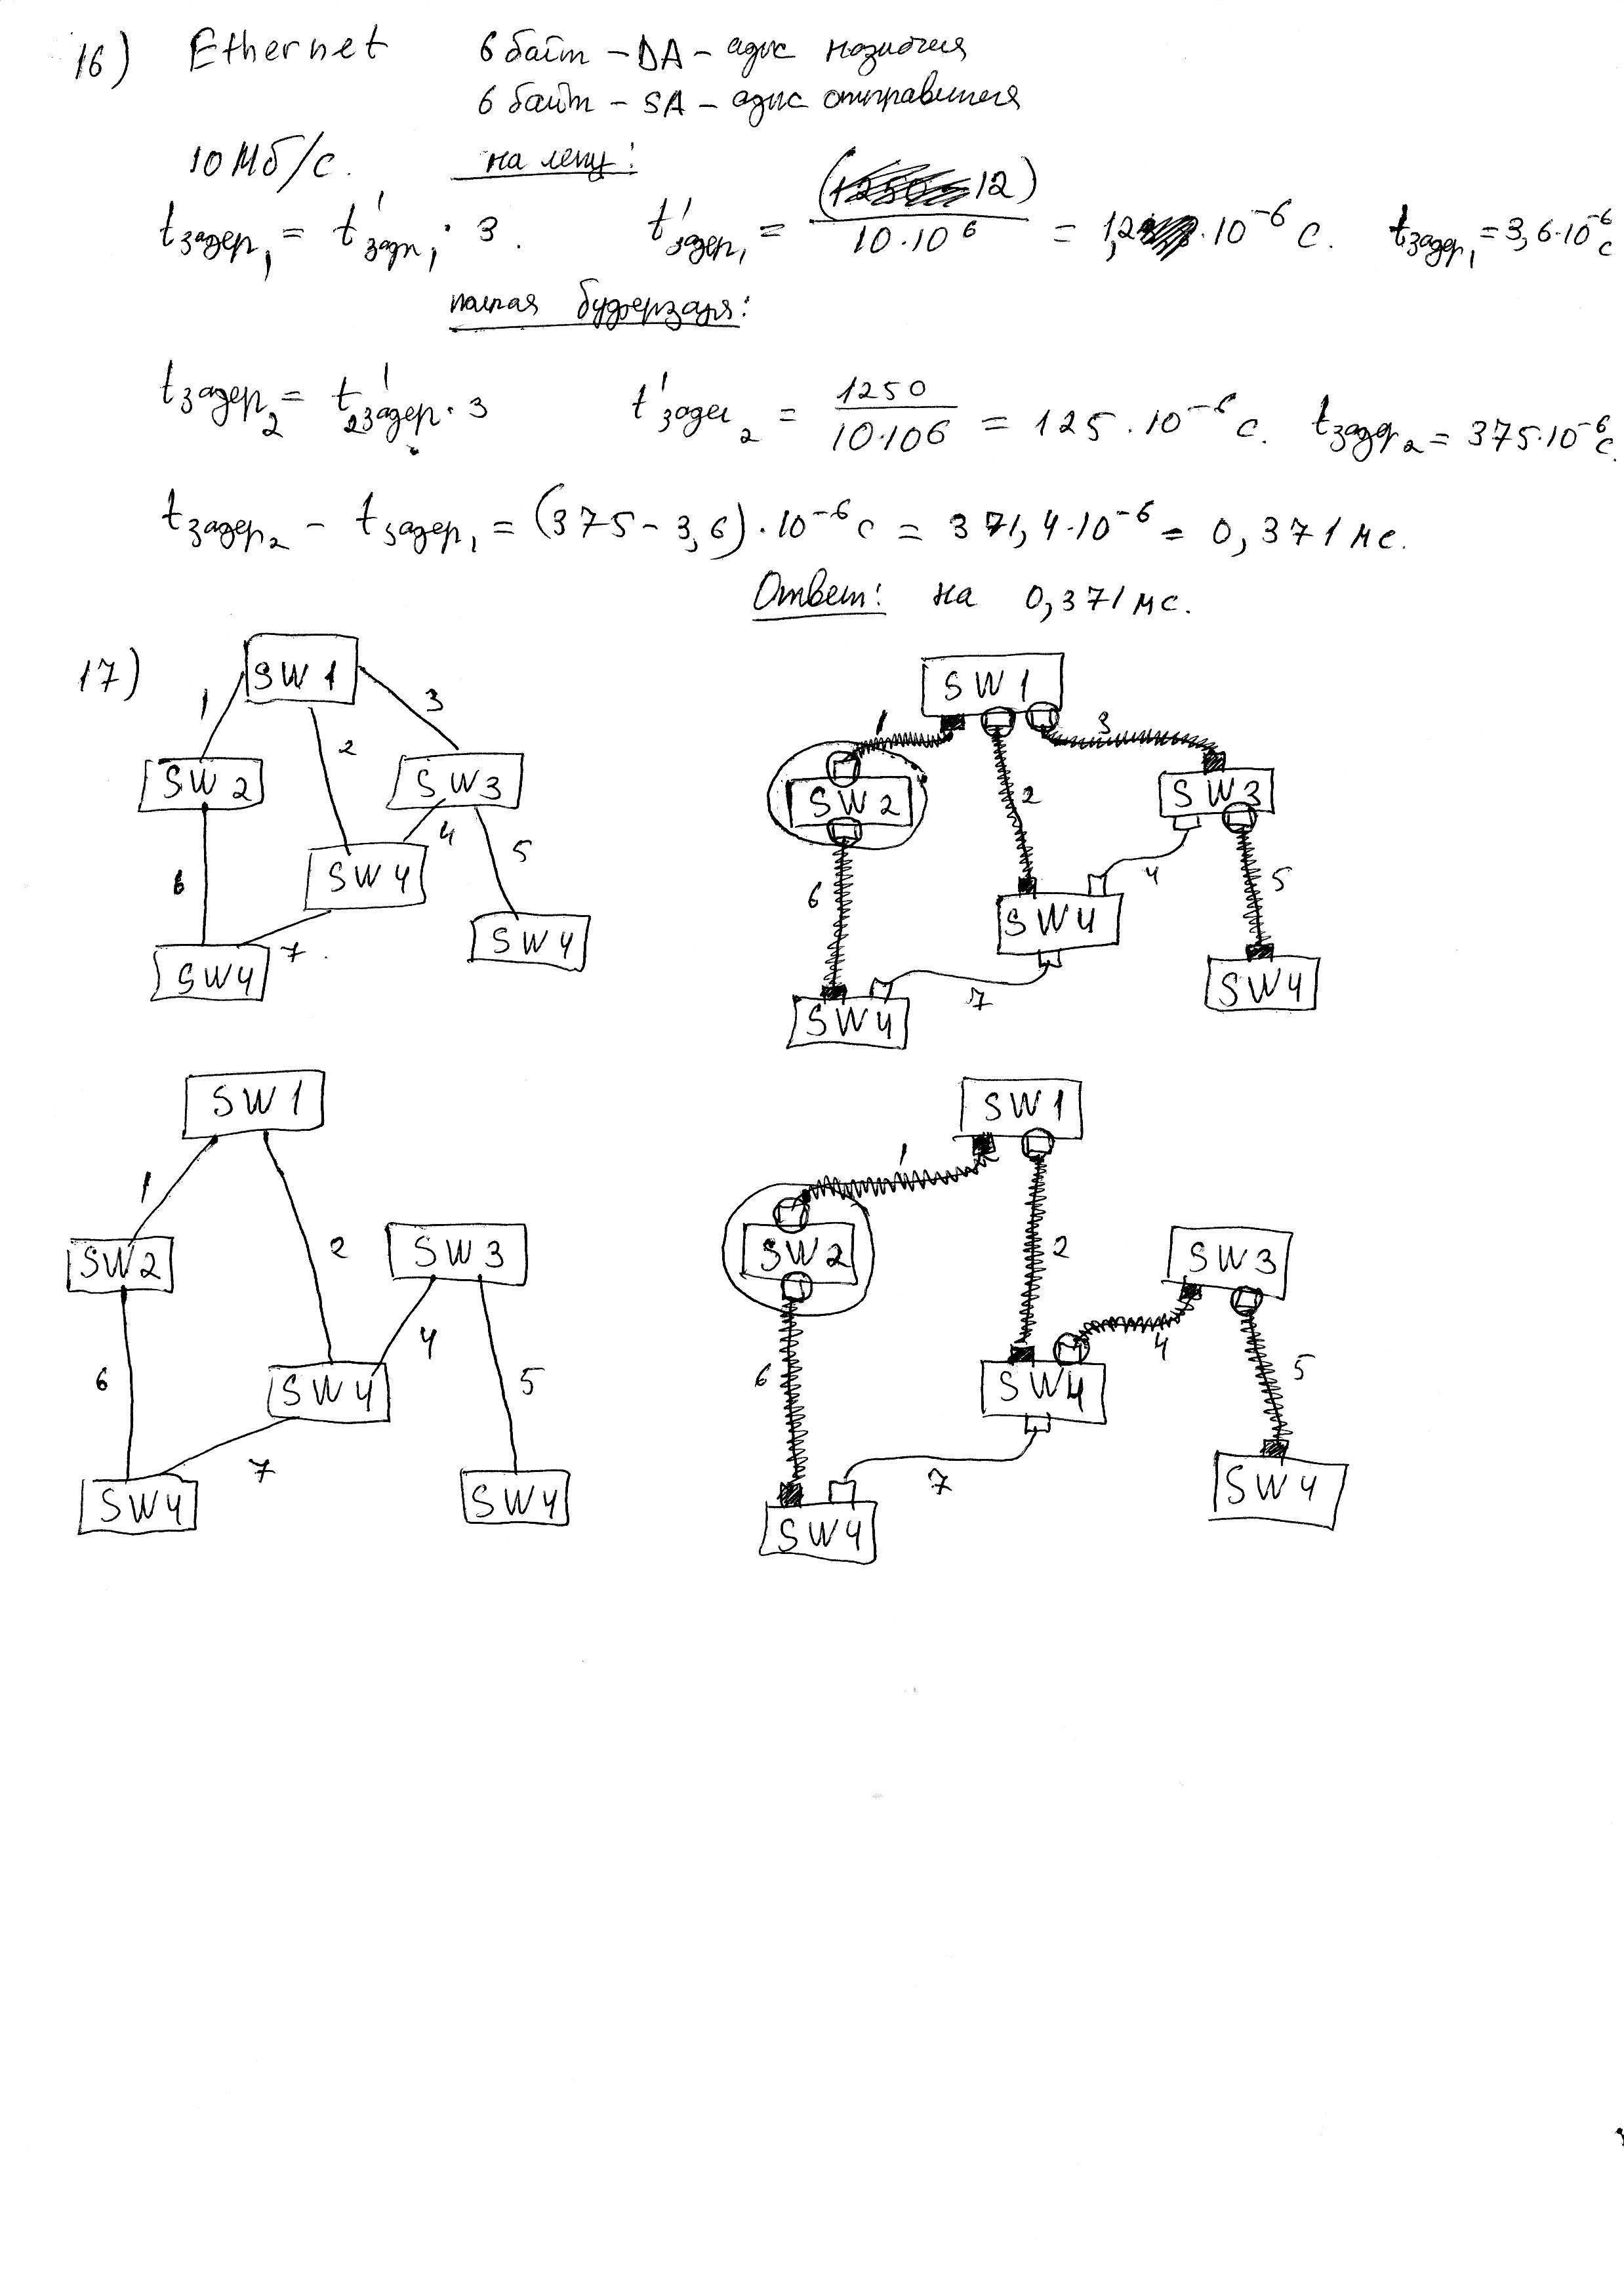 16) Ethernet 6 байт – DA – адрес назначения
6 байт – SA – адрес отправителя
10 Мб/с. на лету:
tзадер₁ = t'задр₁ · 3. t'задер₁ = (12) / 10·10⁶ = 1,2·10⁻⁶ с. tзадер₁ = 3,6·10⁻⁶ с
полная буферизация:
tзадер₂ = t'₂задер · 3 t'задер₂ = 1250 / 10·106 = 125·10⁻⁶ с. tзадер₂ = 375·10⁻⁶ с.
tзадер₂ – tзадер₁ = (375 – 3,6)·10⁻⁶ с = 371,4·10⁻⁶ = 0,371 мс.
Ответ: на 0,371 мс.
17)
SW1
1
3
2
SW2
SW3
4
5
SW4
6
7
SW4
SW4
SW1
1
3
SW2
2
SW3
6
4
5
SW4
7
SW4
SW4
SW1
1
2
SW2
SW3
4
6
5
SW4
7
SW4
SW4
SW1
1
SW2
2
SW3
4
6
5
SW4
7
SW4
SW4